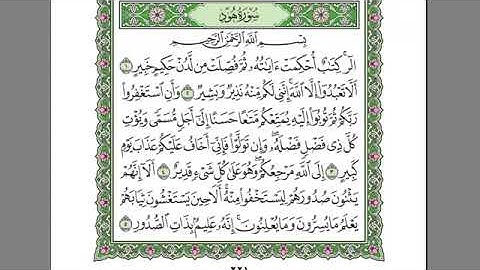 سُورَةُ هُودٍ
بِسْمِ اللَّهِ الرَّحْمَٰنِ الرَّحِيمِ
الٓر ۚ كِتَٰبٌ أُحْكِمَتْ ءَايَٰتُهُۥ ثُمَّ فُصِّلَتْ مِن لَّدُنْ حَكِيمٍ خَبِيرٍ ١
أَلَّا تَعْبُدُوٓا۟ إِلَّا ٱللَّهَ ۚ إِنَّنِى لَكُم مِّنْهُ نَذِيرٌ وَبَشِيرٌ ٢ وَأَنِ ٱسْتَغْفِرُوا۟
رَبَّكُمْ ثُمَّ تُوبُوٓا۟ إِلَيْهِ يُمَتِّعْكُم مَّتَٰعًا حَسَنًا إِلَىٰٓ أَجَلٍ مُّسَمًّى وَيُؤْتِ
كُلَّ ذِى فَضْلٍ فَضْلَهُۥ ۖ وَإِن تَوَلَّوْا۟ فَإِنِّىٓ أَخَافُ عَلَيْكُمْ عَذَابَ يَوْمٍ
كَبِيرٍ ٣ إِلَى ٱللَّهِ مَرْجِعُكُمْ ۖ وَهُوَ عَلَىٰ كُلِّ شَىْءٍ قَدِيرٌ ٤ أَلَآ إِنَّهُمْ
يَثْنُونَ صُدُورَهُمْ لِيَسْتَخْفُوا۟ مِنْهُ ۚ أَلَا حِينَ يَسْتَغْشُونَ ثِيَابَهُمْ
يَعْلَمُ مَا يُسِرُّونَ وَمَا يُعْلِنُونَ ۚ إِنَّهُۥ عَلِيمٌۢ بِذَاتِ ٱلصُّدُورِ ٥
٢٢١